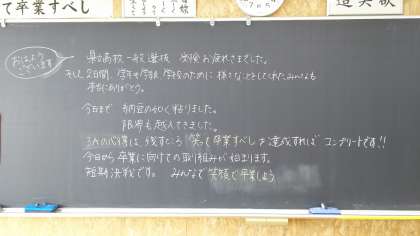 て卒業すべし
おはよう
ございます
県立高校一般選抜 受検お疲れさまでした。
そして2日間、学年や学級、学校のために 様々なことをしてくれたみんなも
本当にありがとう。
今日まで 納豆のごとく粘りました。
限界も越えてきました。
3Aの心得は、残すところ "笑って卒業すべし"を達成すれば コンプリートです!!
今日から卒業に向けての取り組みが始まります。
短期決戦です。 みんなで笑顔で卒業しよう